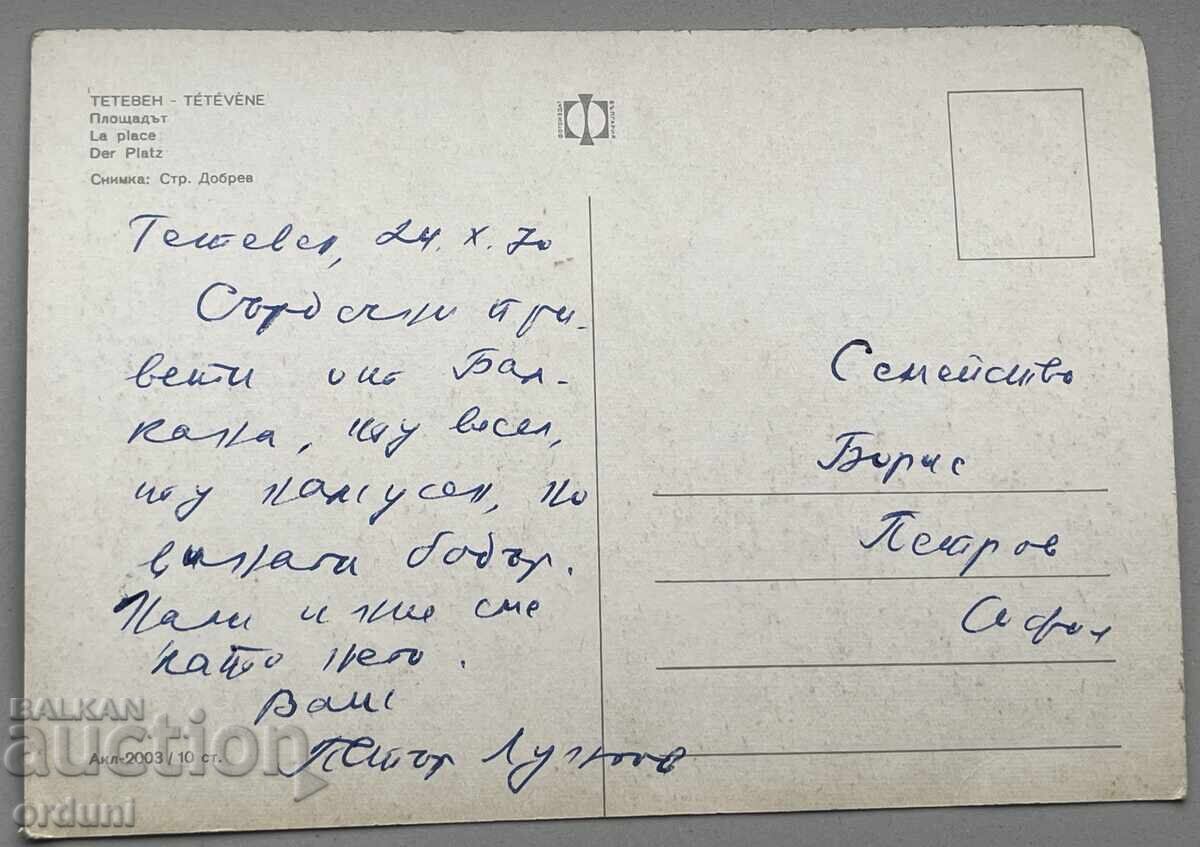 ТЕТЕВЕН - TÉTÉVÈNE
Площадът
La place
Der Platz
Снимка: Стр. Добрев
ФОТОИЗДАТ
БЪЛГАРИЯ
Тетевен, 24. X. 70
Сърдечни при-
вети от Бал-
кана, ту весел,
ту намусен, но
винаги бодър.
Нали и ние сме
като него.
Ваш
Петър
Семейство
Борис
Петров
София
Акл-2003/10 ст.
BALKAN
auction
orduni